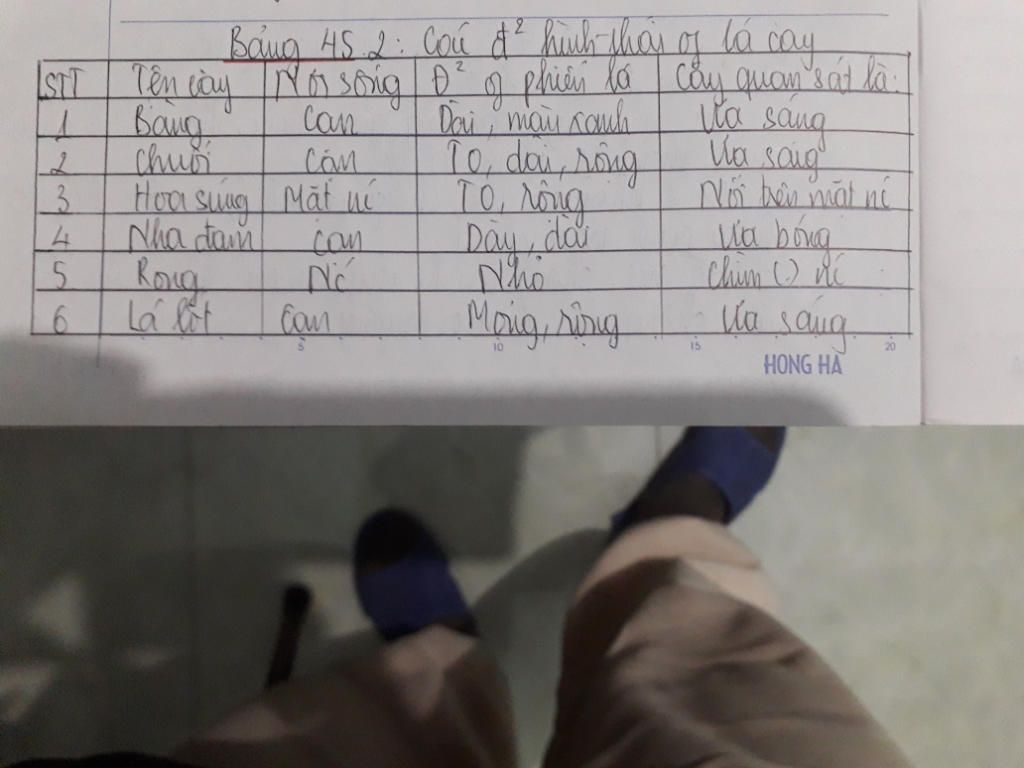 Bảng 45.2: Các đ² hình thái of lá cây
STT Tên cây Nơi sống Đ² of phiến lá Cây quan sát là:
1 Bàng Cạn Dài, màu xanh Ưa sáng
2 Chuối Cạn To, dài, rộng Ưa sáng
3 Hoa súng Mặt nc To, rộng Nổi trên mặt nc
4 Nha đam cạn Dày, dài Ưa bóng
5 Rong Nc Nhỏ Chìm (.) nc
6 Lá lốt Cạn Mỏng, rộng Ưa sáng
5 10 15 20
HONG HA